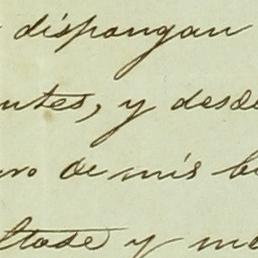 dispongan
ntes, y desde
ro de mis b
ltase y me